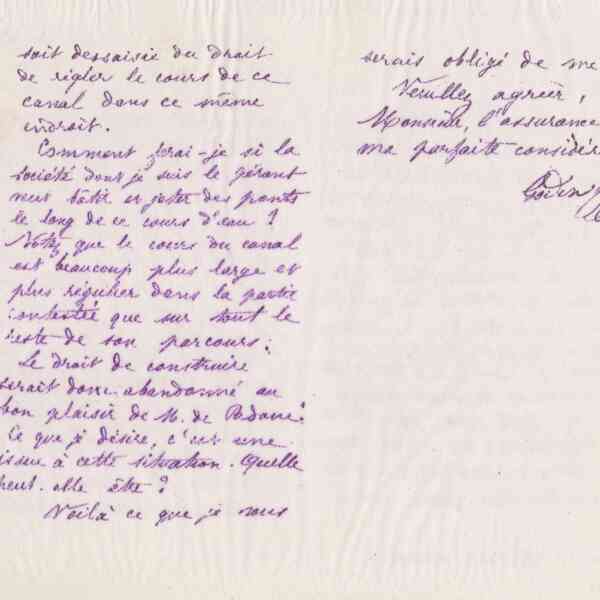 soit dessaisie du droit
de régler le cours de ce
canal dans ce même
endroit.
Comment ferai-je si la
société dont je suis le gérant
veut bâtir et jeter des ponts
le long de ce cours d'eau ?
Notez que le cours du canal
est beaucoup plus large et
plus régulier dans la partie
contestée que sur tout le
reste de son parcours.
Le droit de construire
serait donc abandonné au
bon plaisir de M. de Padoue.
Ce que je désire, c'est une
issue à cette situation. Quelle
peut-elle être ?
Voilà ce que je vous
serais obligé de me
Veuillez agréer,
Monsieur, l'assurance
ma parfaite considér
Godin